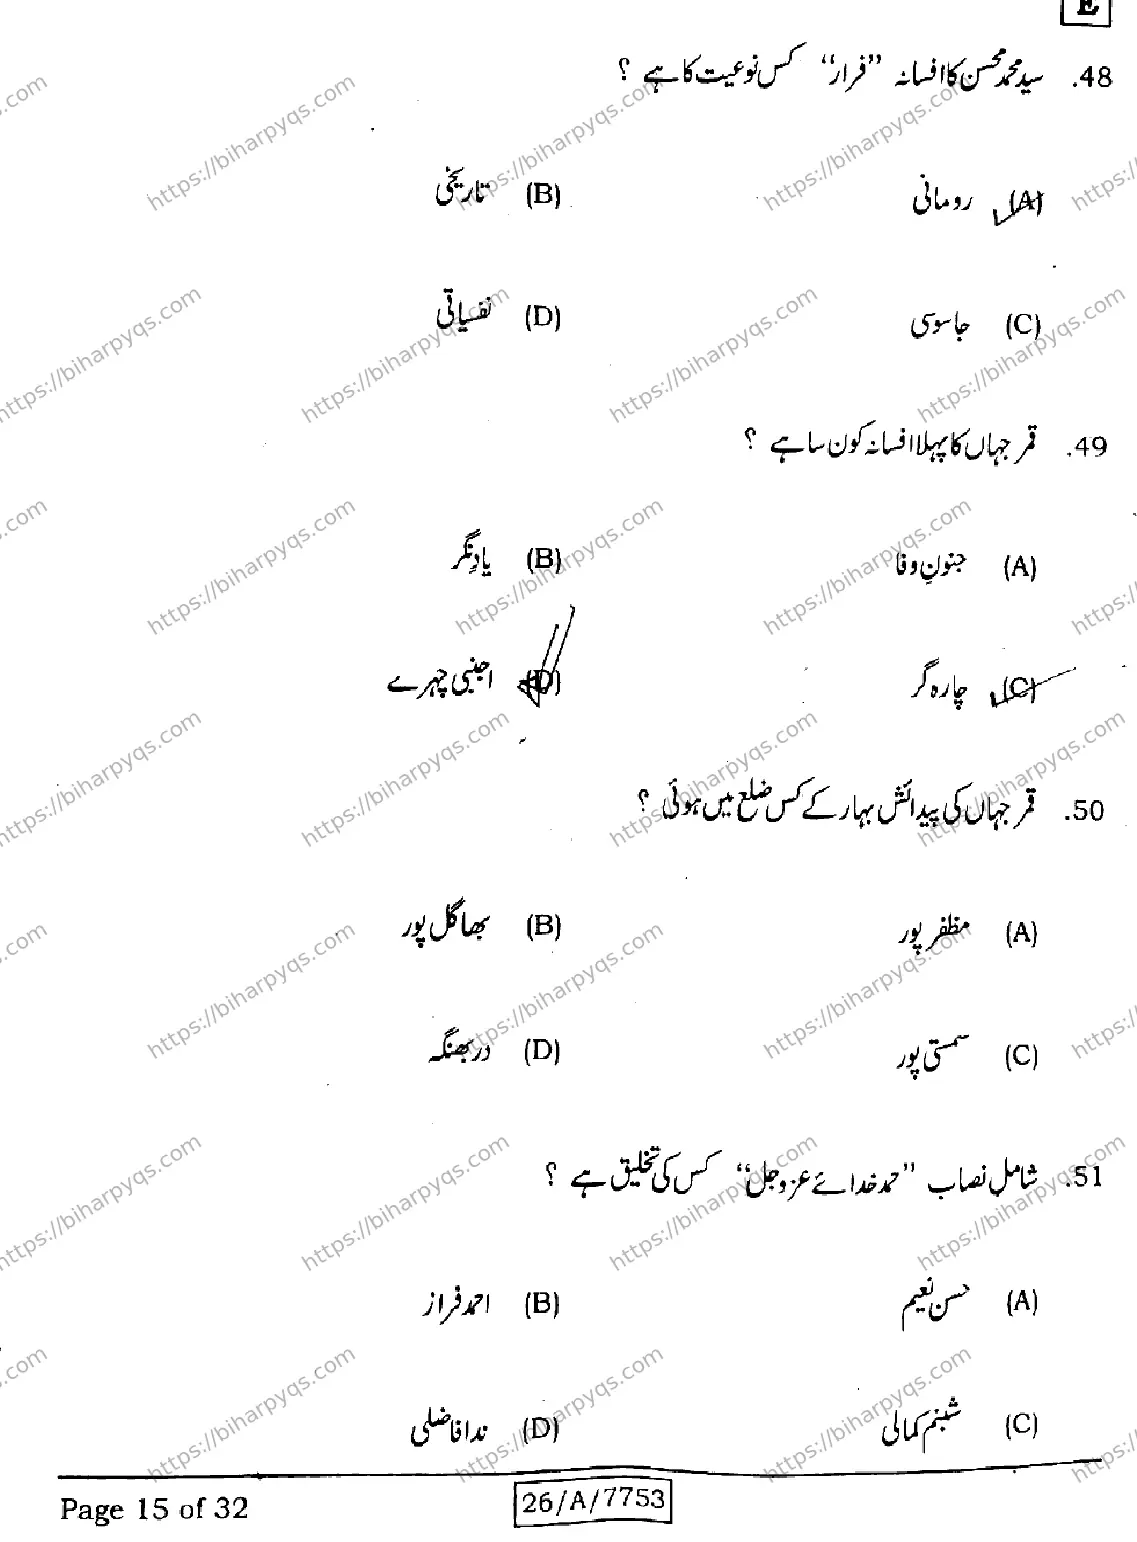 E
48. سید محمد محسن کا افسانہ ”فرار“ کس نوعیت کا ہے ؟
(A) رومانی (B) تاریخی
(C) جاسوسی (D) نفسیاتی
49. قمر جہاں کا پہلا افسانہ کون سا ہے ؟
(A) جنونِ وفا (B) یادِ نگر
(C) چارہ گر (D) اجنبی چہرے
50. قمر جہاں کی پیدائش بہار کے کس ضلع میں ہوئی ؟
(A) مظفر پور (B) بھاگل پور
(C) سمستی پور (D) دربھنگہ
51. شامل نصاب ”حمد خدائے عز و جل“ کس کی تخلیق ہے ؟
(A) حسن نعیم (B) احمد فراز
(C) شبنم کمالی (D) ندا فاضلی
Page 15 of 32 26/A/7753
https://biharpyqs.com